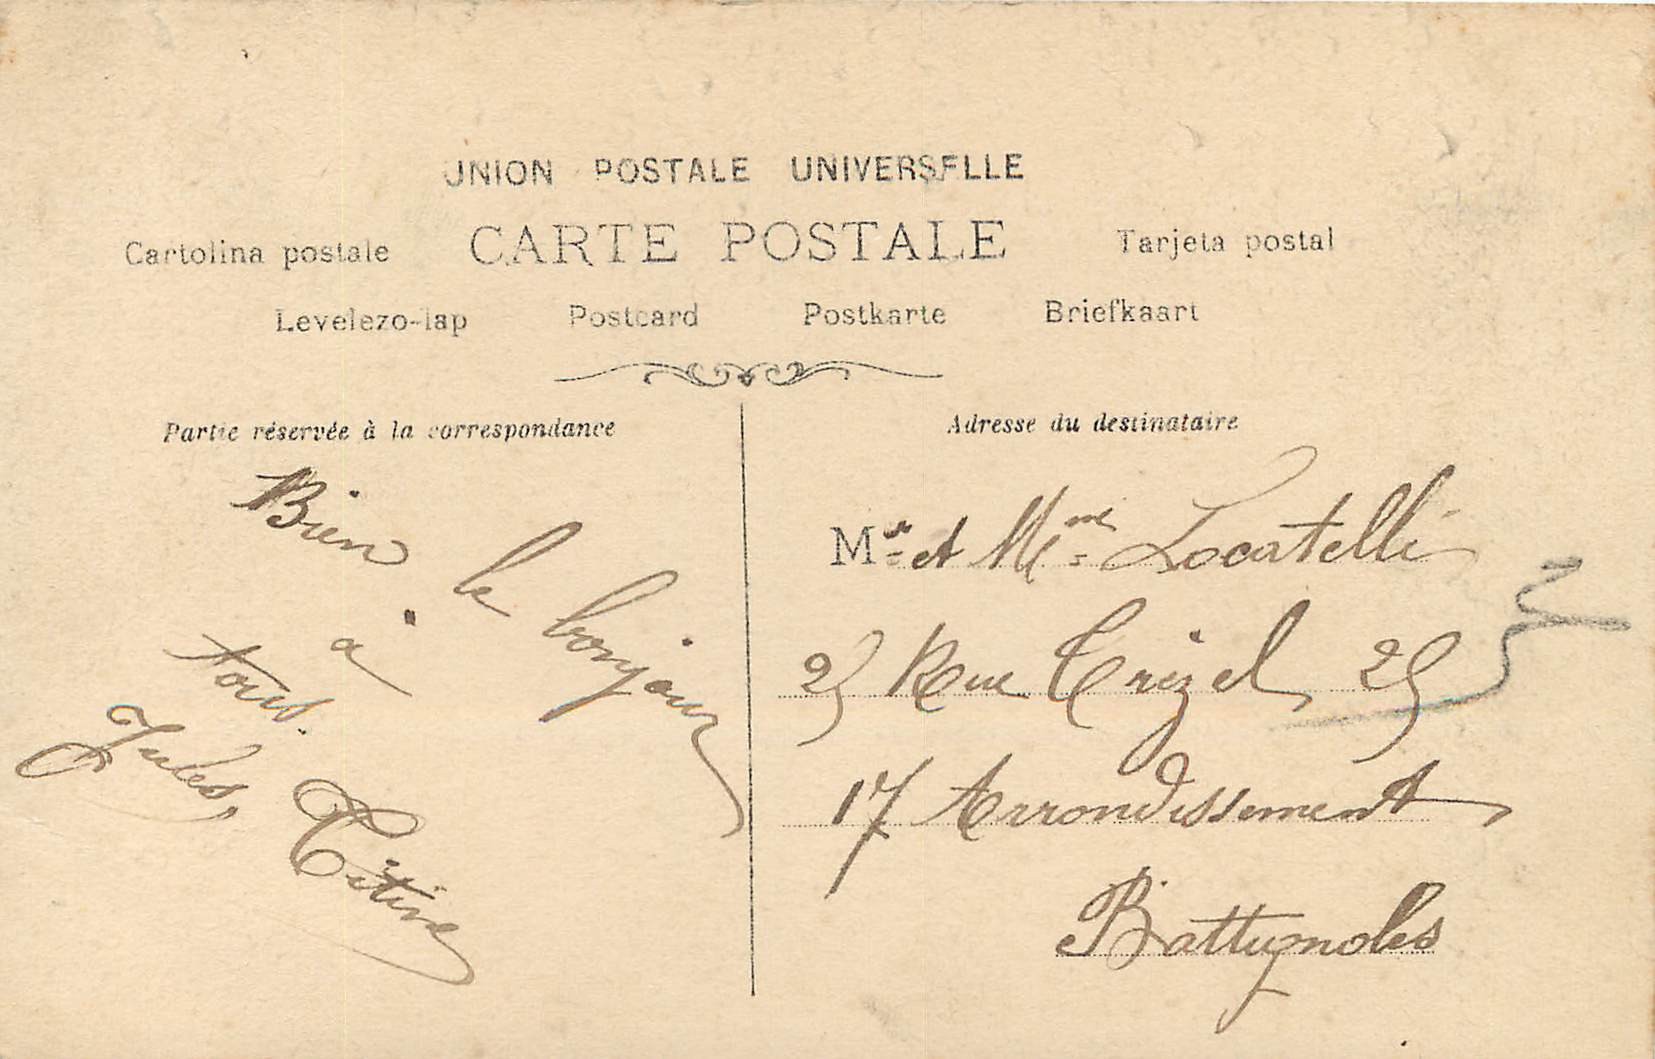 UNION POSTALE UNIVERSELLE
Cartolina postale CARTE POSTALE Tarjeta postal
Levelezo-lap Postcard Postkarte Briefkaart
Partie réservée à la correspondance
Bien le bonjour
à
tous.
Jules, Titine
Adresse du destinataire
Mr et Mme Locatelli
25 Rue Trézel 25
17 Arrondissement
Battignoles